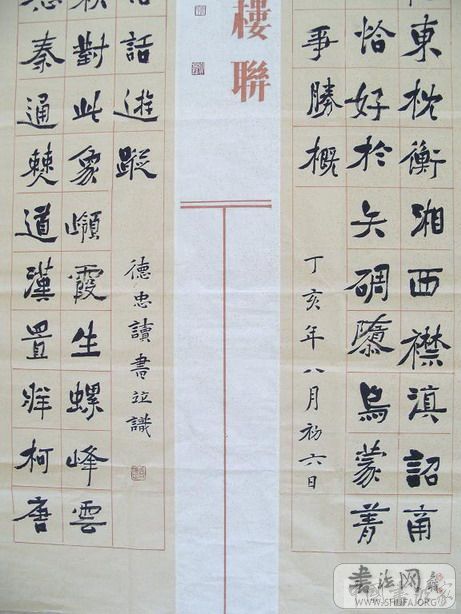 東枕衡湘西襟滇詔南
恰好於矢碉隳烏蒙菁
爭勝概
丁亥年八月初六日
樓聯
話遊蹤
德忠讀書並識
秋對此象嶺霞生螺峰雲
秦通僰道漢置牂柯唐
書法网
WWW.SHUFAJ.ORG